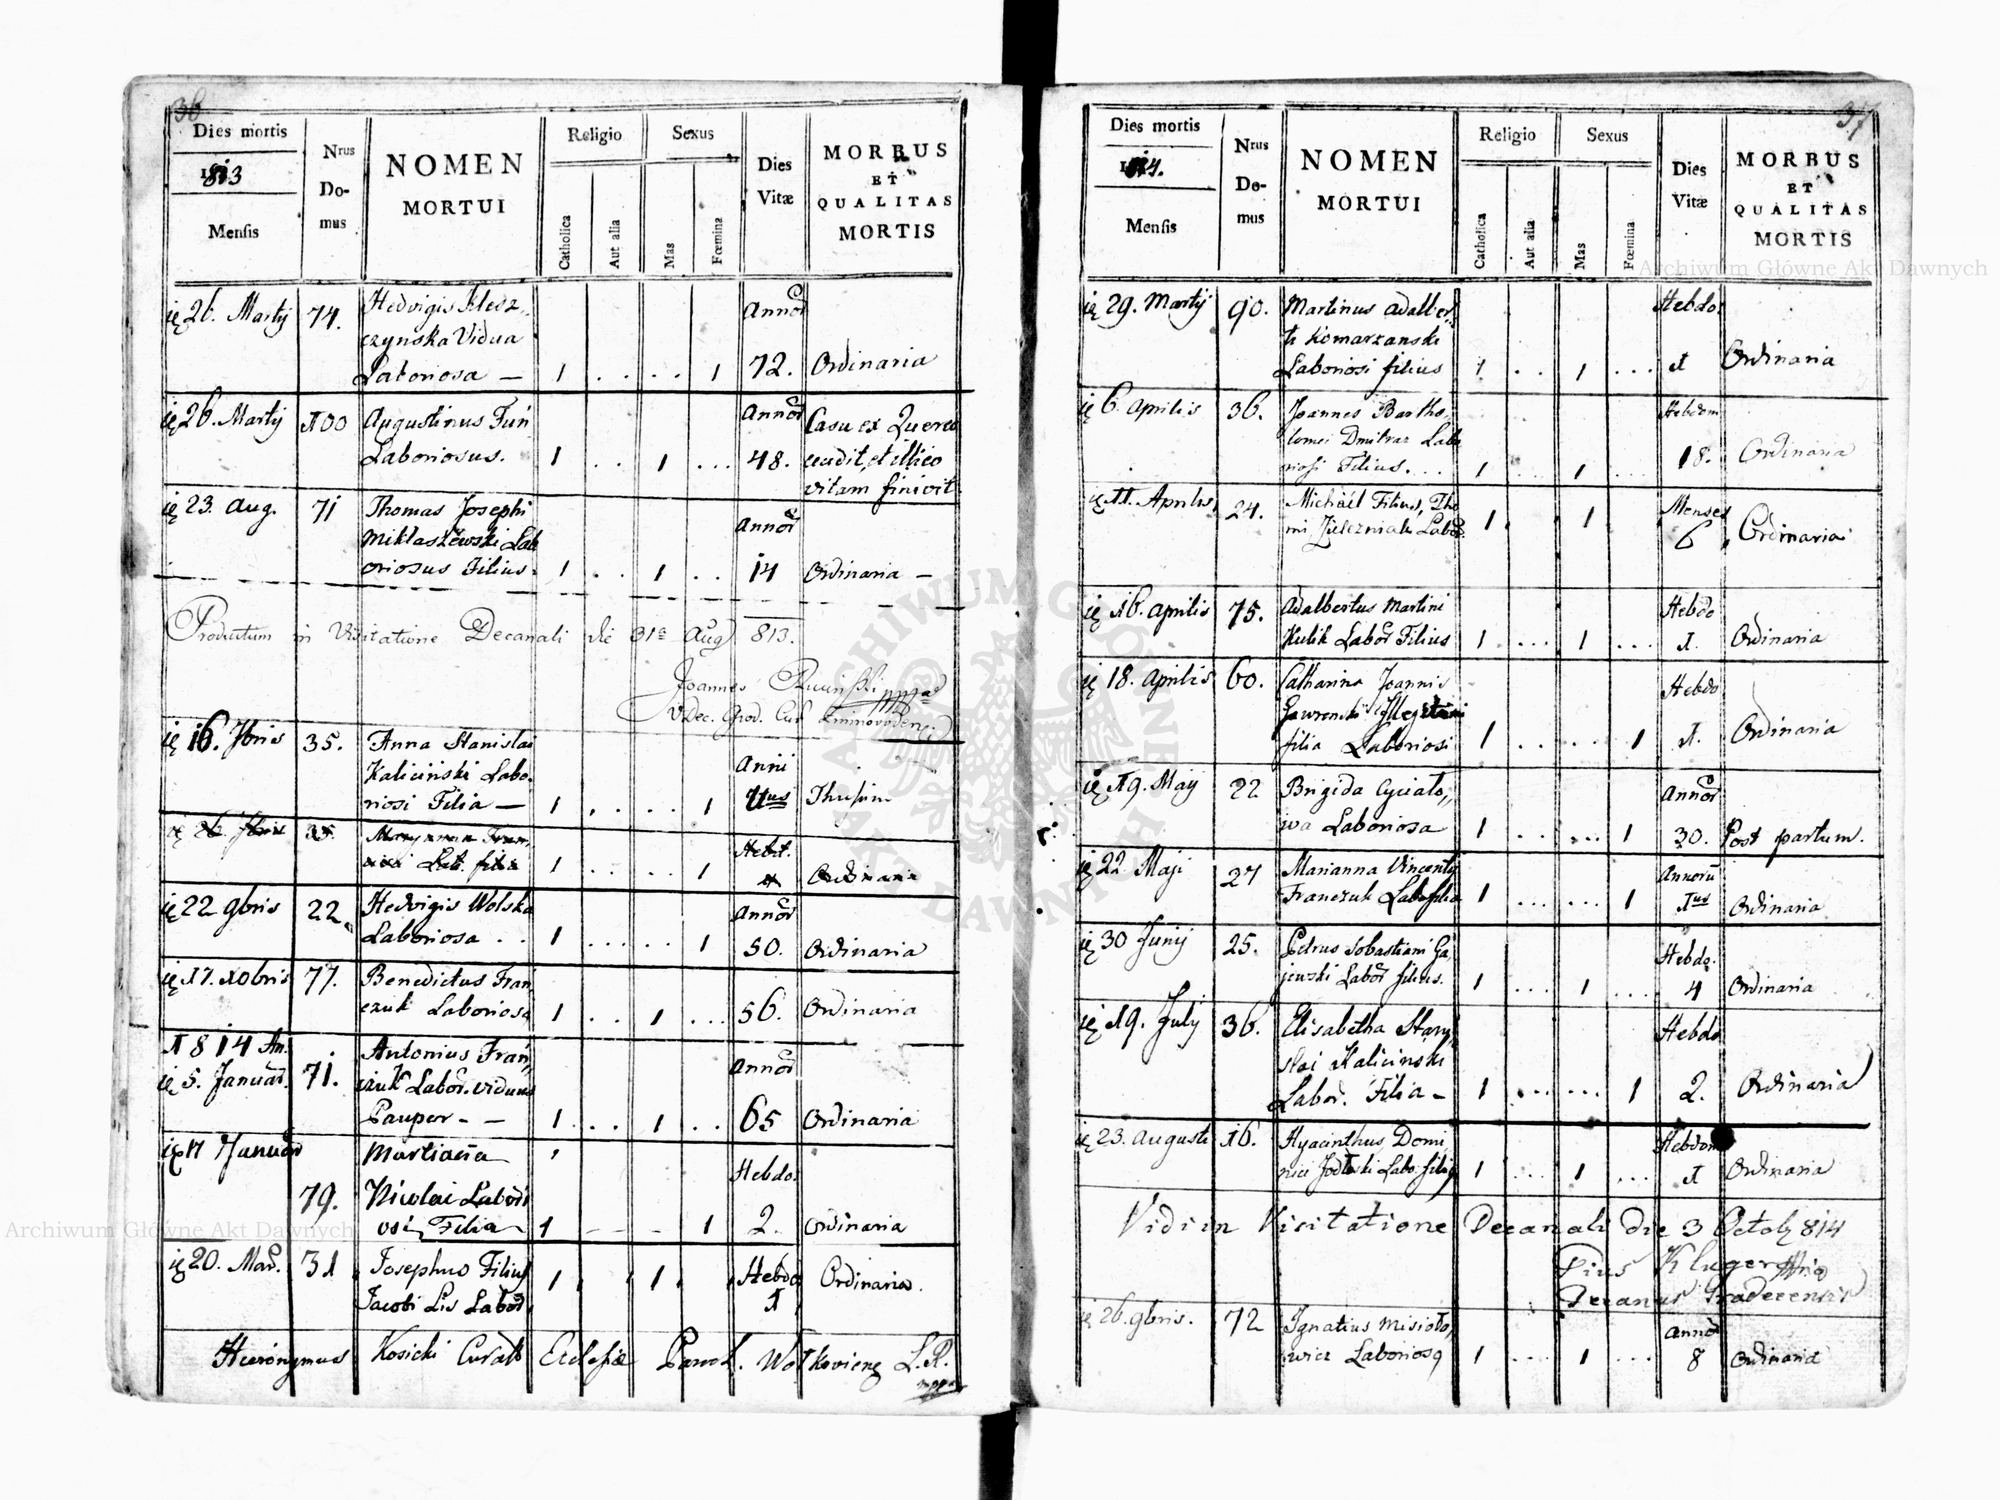 36
Dies mortis
813
Mensis
Nrus
Do-
mus
NOMEN
MORTUI
Religio
Catholica
Aut alia
Sexus
Mas
Fœmina
Dies
Vitæ
MORBUS
ET
QUALITAS
MORTIS
26. Martij 74. Hedvigis
czynska Vidua
Laboriosa — 1 . . . . 1 Annor 72. Ordinaria
26. Martij 100 Augustinus Fuń
Laboriosus. 1 . . 1 . . . Annor 48. Casu ex Quercu
cecidit, et illico
vitam finivit
23. Aug. 71 Thomas Josephi
Miklaszewski Lab
oriosus Filius. 1 . . 1 . . Annor 14 Ordinaria —
Productum in Visitatione Decanali die 31a Aug 813.
Joannes
V Dec. Grod. Cur.
16. 7bris 35. Anna Stanislai
Kaliciński Labo.
riosi Filia — 1 . . . . 1 Anni Ius
26. 7bris 35. Maryanna Fran
Lab. filia 1 . . . . 1 Hebd. Ordinaria
22 9bris 22. Hedvigis Wolska
Laboriosa . . 1 . . . . . 1 Annor 50. Ordinaria
17. 10bris 77. Benedictus Fran
czuk Laboriosq 1 . . 1 . . . 56. Ordinaria
1814 An.
5. Januar. 71. Antonius Frań
czuk Labor. viduus
Pauper - - 1 . . 1 . . Annor 65 Ordinaria
Januar 79. Martiana
Nicolai Labori
osi Filia 1 - - - 1 Hebdo. 2. Ordinaria
20. Mar. 31 Josephus Filius
Jacobi Lis Labor. 1 1 Hebdo 1 Ordinaria.
Hieronymus Kosicki Curat Eclesiæ Paroh. Wolkoviene L.R.
mppa
37
Dies mortis
814.
Mensis
Nrus
Do-
mus
NOMEN
MORTUI
Religio
Catholica
Aut alia
Sexus
Mas
Fœmina
Dies
Vitæ
MORBUS
ET
QUALITAS
MORTIS
29. Martij 90. Martinus Adalber
ti Komarzanski
Laboriosi filius 1 . . 1 . . . Hebdo. 1 Ordinaria
6. Aprilis 36. Joannes Bartho,
lomei Dmitraz Labo
riosi Filius. . . 1 1 . . . Hebdom 18. Ordinaria
11. Aprilis 24. Michaël Filius, Tho
mi Zielezniak Labor. 1 1 Menses 6 Ordinaria
16. Aprilis 75. Adalbertus Martini
Kulik Labor Filius 1 . . . 1 . . . Hebdo 1. Ordinaria
18. Aprilis 60. Catharina Joannis
Gawronski
filia Laboriosi 1 . . . . . . 1 Hebdo 1. Ordinaria
19. Maij 22 Brigida Cyciało,,
wa Laboriosa 1 . . . . . . 1 Annor 30. Post partum.
22 Maji 27 Marianna Vincentij
Franczuk Labo filia 1 . . . . . . 1 Annorū Ius Ordinaria
30 Junij 25. Petrus Sebastiani Ga
jewski Labor filius. 1 . . . 1 . . . Hebdo. 4 Ordinaria
19. July 36. Elisabetha Stany
slai Kalicinski
Labor. Filia - 1 . . . . . . 1 Hebdo 2. Ordinaria
23. Augusti 16. Hyacinthus Domi
nici Labo. filiq 1 . . . 1 . . . Hebdom 1 Ordinaria
Vidi in Visitatione Decanali die 3 Octob 814
Pius Kluger
Decanus Gradecensis
26. 9bris. 72 Ignatius Misioło,
wicz Laboriosq 1 . . . 1 . . . Annor 8 Ordinaria
Archiwum Główne Akt Dawnych
Archiwum Główne Akt Dawnych
ARCHIWUM GŁÓWNE
AKT DAWNYCH